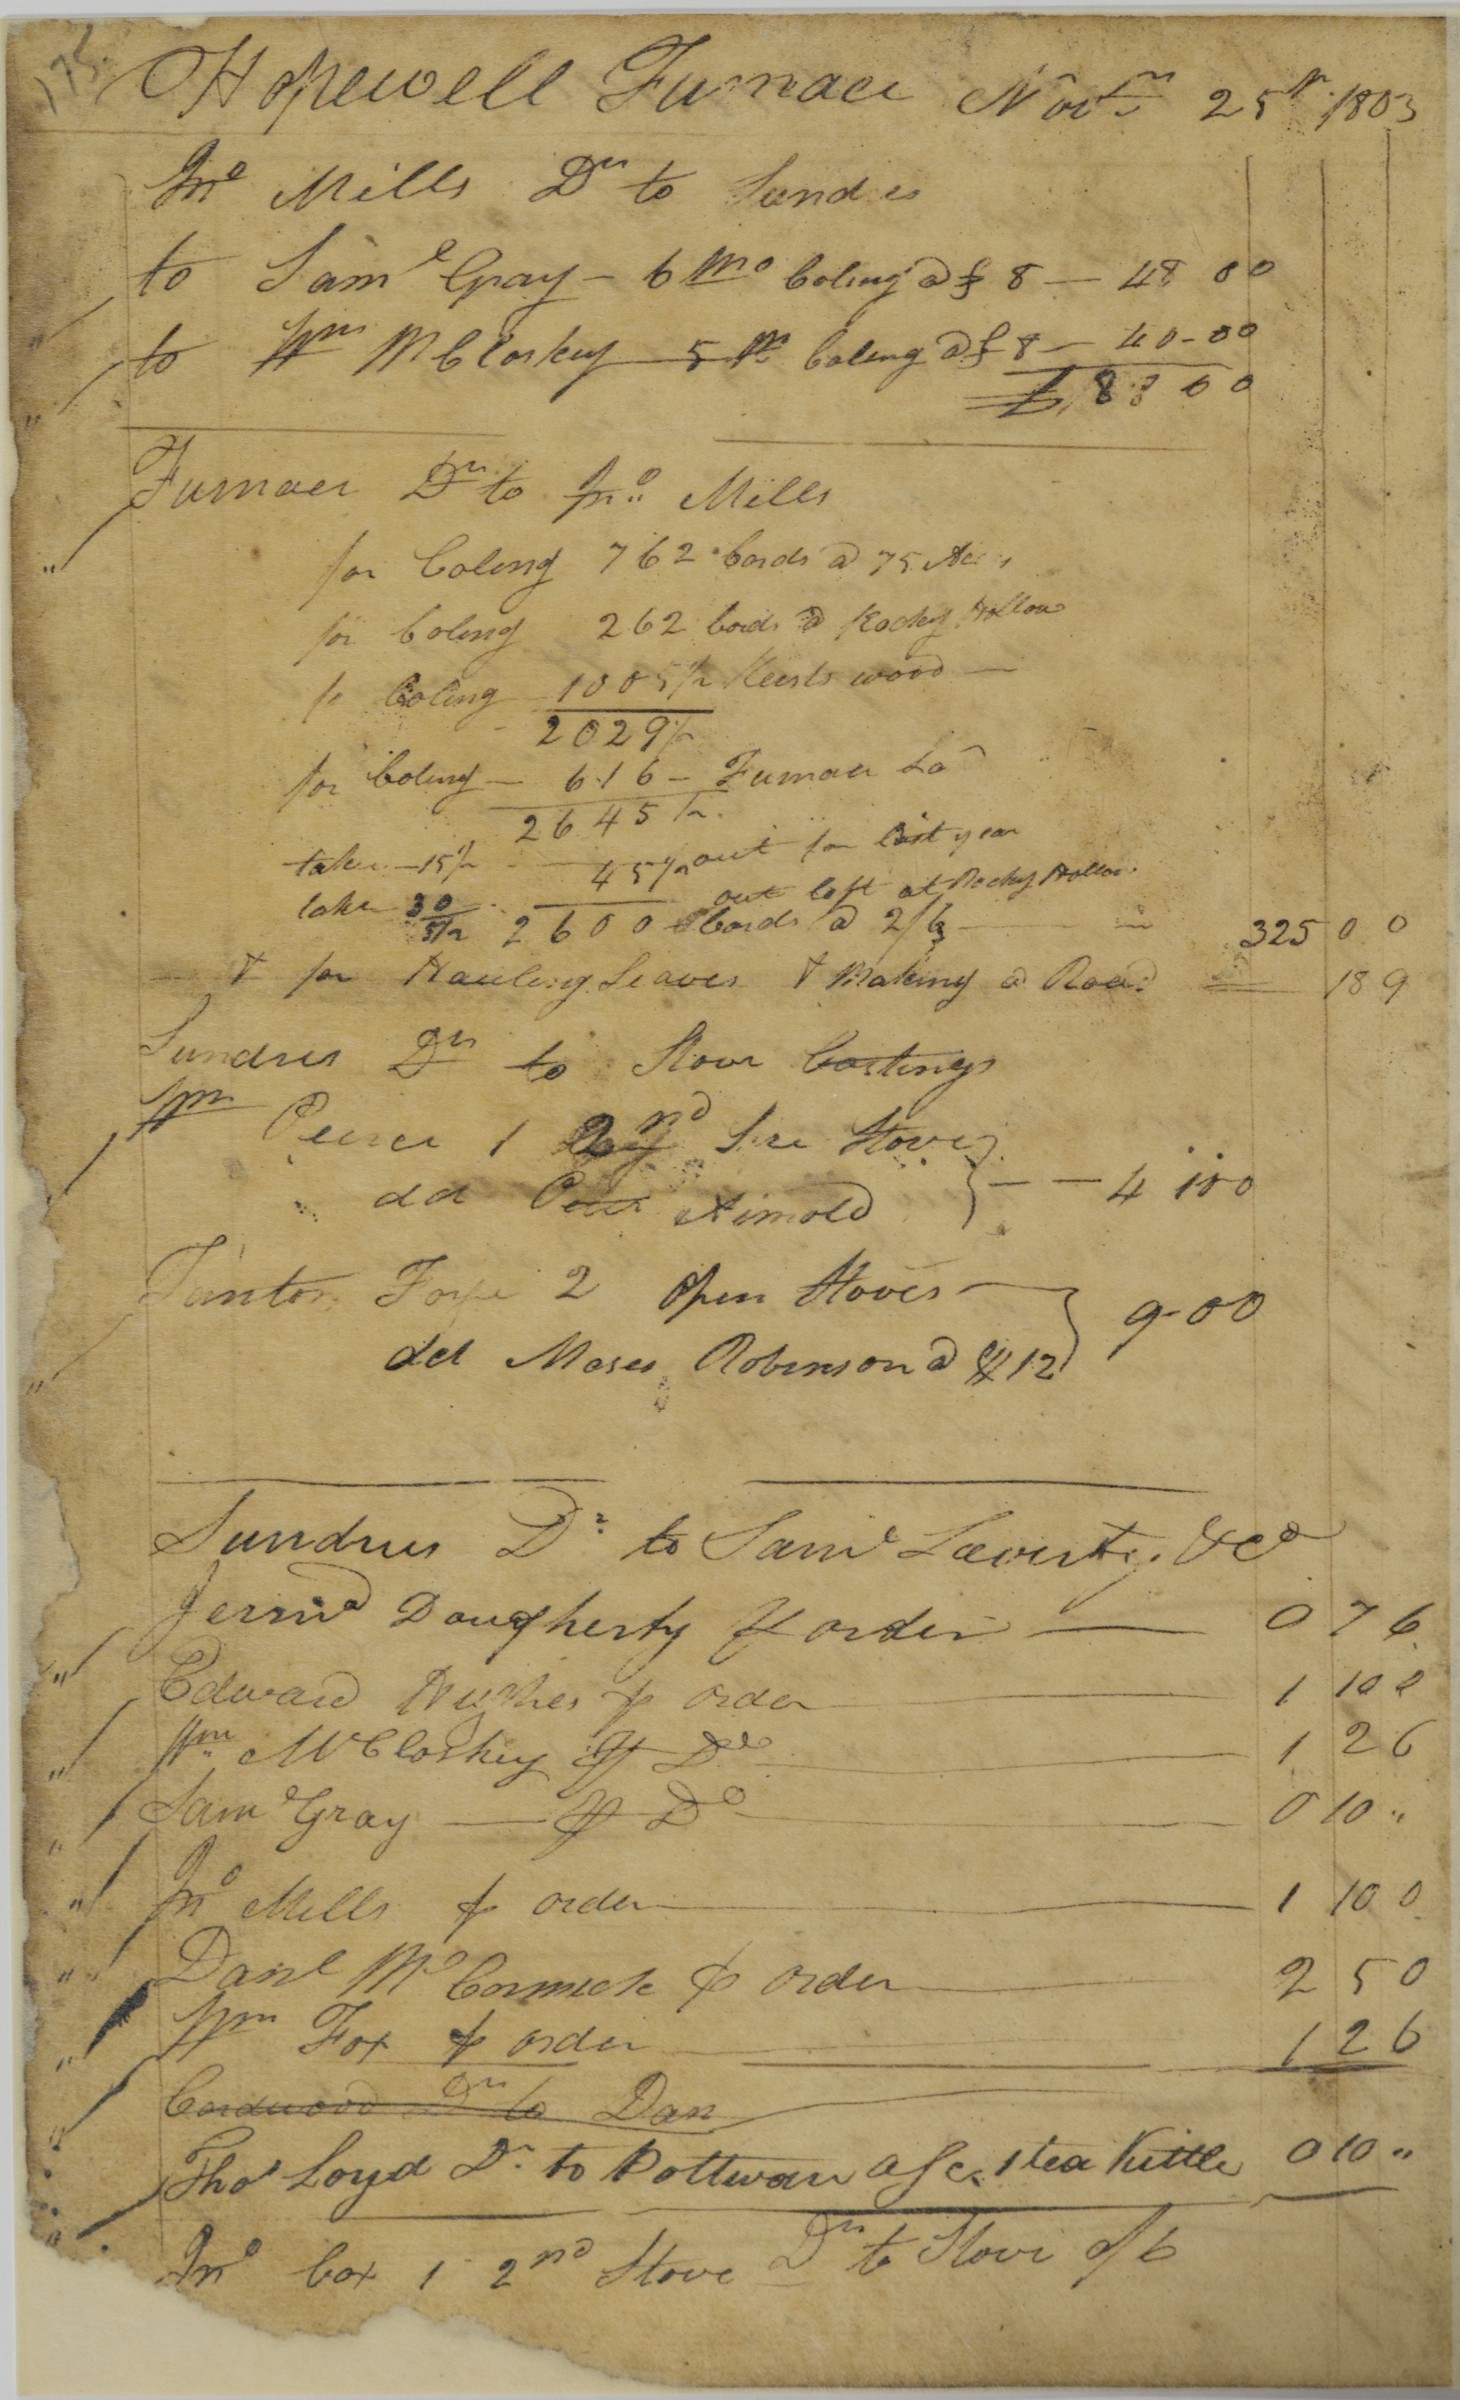 175
Hopewell Furnace Novr 25th 1803
Jno Mills Dr to Sundres
to Saml Gray - 6 mo Coling @ £ 8 — 48 00
to Wm McCloskey 5 m Coling @ £ 8 — 40-00
£ 88 00
Furnace Dr to Jno Mills
for Coling 762 Cords @ 75
for Coling 262 Cords @ Rocky Hollow
for Coling 1005½ Keersts wood —
2029½
for Coling — 616 — Furnace La
2645½
take —15½ — 45½ out for Last year
take 30 out left at Rocky Hollow
2600 Cords @ 2/6 — 325 0 0
& for Hauling Leaves & Making a Road — 18 9
Sundres Dr to Stove Castings
Wm Peirce 1 2nd Size Stove
dd Arnold } — — 4 10 0
Forge 2 open Stoves
dd Moses Robinson @ $12 } 9-00
Sundrus Dr to Saml Laverty, &Co
Jerrmd Dougherty pr order — 0 7 6
Edward Hughes pr order 1 10 0
Wm McCloskey pr Do 1 2 6
Saml Gray — pr Do 0 10 "
Jno Mills pr order 1 10 0
Danl McCormick pr order 2 5 0
Wm Fox pr order 1 2 6
Cordwood Dr to Dan
Thos Loyd Dr to Pottware a/c 1 tea Kittle 0 10 "
Jno Cox 1 2nd Stove Dr to Stove